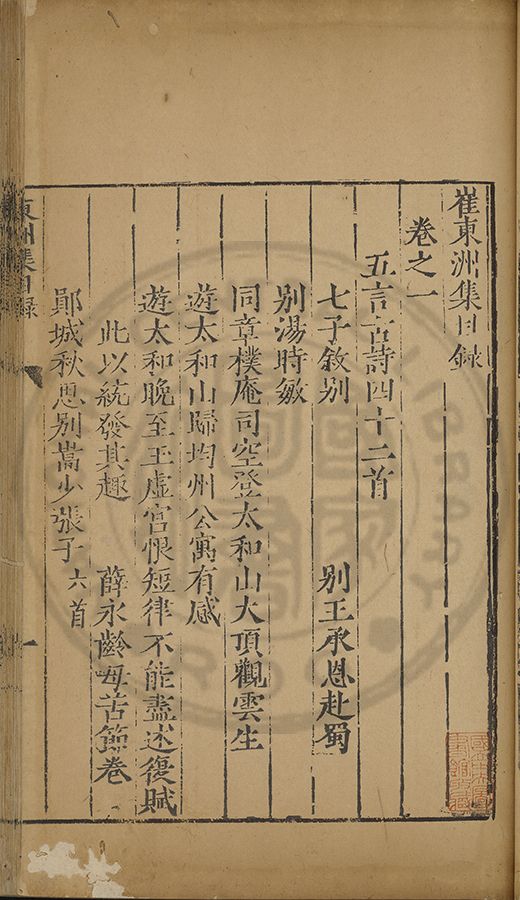 崔東洲集目錄
卷之一
五言古詩四十二首
七子敘别 别王承恩赴蜀
别湯時敏
同章樸庵司空登太和山大頂觀雲生
遊太和山歸均州公寓有感
遊太和晚至玉虛宫恨短律不能盡述復賦
此以統發其趣 薛永齡母苦節卷
鄖城秋思别嵩少張子六首
東洲集目錄
一